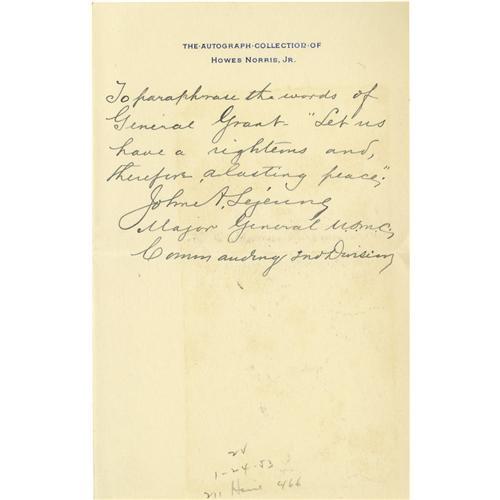 THE·AUTOGRAPH·COLLECTION·OF
HOWES NORRIS, JR.
To paraphrase the words of
General Grant - "Let us
have a righteous and,
therefore, a lasting peace".
John A. Lejeune
Major General U.S.M.C.
Commanding 2nd Division
1-24-53
466